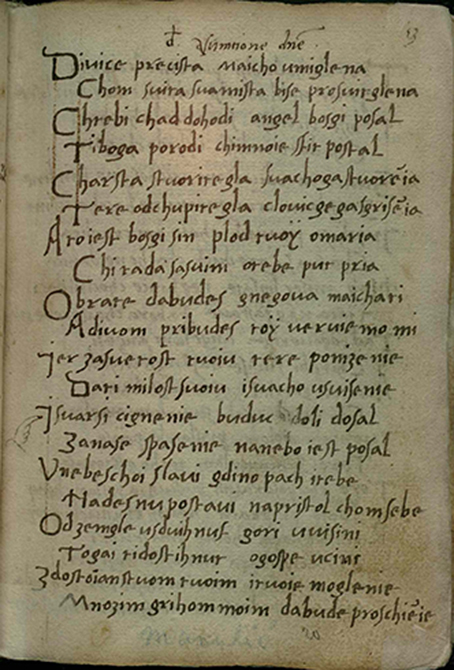 13
Divice precista maicho umiglena
Chom svita svamista bise prosvirglena
Chrebi chad dohodi angel bosgi posal
Tiboga porodi chimnoie stit postal
Charsta stvoriteglia svachoga
Tere odchupitegla
A to iest bosgi sin plod tvoy o maria
Chi rada sasvimi o tebe put pria
Obrate dabudes gnegova maichati
A divom pribudes toy veruiemo mi
ier zasverost tvoiu tere ponizenie
Dari milost svoiu isvacho usvisenie
I svarsi cignenie buduc doli dosal
Zanase spasenie nanebo iest posal
Vnebeschoi slavi gdino pach tebe
Nadesnu postavi napristol chom sebe
Odzemgle usdvihnut gori uvisini
Togai ridostihnut ogospe ucini
Zdostoianstvom tvoim itvoie moglenie
Mnozim grihom moim dabude